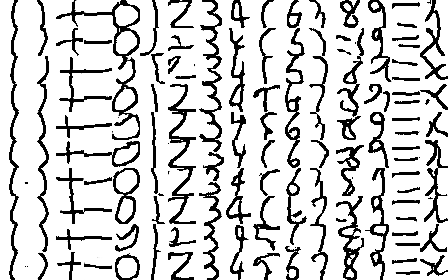 ( ) + - 0 ) 2 3 4 ( 6 7 8 9 = x
( ) + - 0 2 3 4 ( 6 7 9 = x
( ) + - 2 3 4 ( 7 8 = x
( ) + - 0 1 2 3 4 5 6 7 8 9 = x
( ) + - 0 1 2 3 4 5 6 7 8 9 = x
( ) + - 0 1 2 3 4 6 7 8 9 = x
( ) + - 0 1 2 3 4 ( 6 7 8 9 = x
( ) + - 0 1 2 3 4 ( 6 7 8 9 = x
( ) + - 9 1 2 3 4 5 6 7 8 9 = x
( ) + - 0 1 2 3 4 5 6 7 8 9 = x